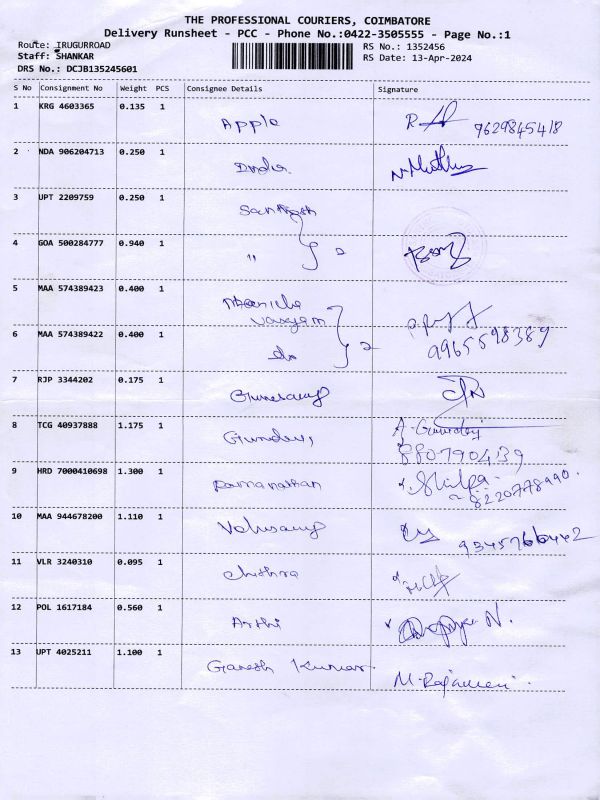 THE PROFESSIONAL COURIERS, COIMBATORE
Delivery Runsheet - PCC - Phone No.:0422-3505555 - Page No.:1
Route: IRUGURROAD
RS No.: 1352456
Staff: SHANKAR
RS Date: 13-Apr-2024
DRS No.: DCJB135245601
S No Consignment No Weight PCS Consignee Details Signature
1 KRG 4603365 0.135 1 Apple 9629845418
2 NDA 906204713 0.250 1 N. Muthu
3 UPT 2209759 0.250 1 Santhosh
4 GOA 500284777 0.940 1 " 2
5 MAA 574389423 0.400 1
6 MAA 574389422 0.400 1 do 2 9965598389
7 RJP 3344202 0.175 1 Gunasamy
8 TCG 40937888 1.175 1 8807790439
9 HRD 7000410698 1.300 1 Ramanathan Shilpa 8220778990
10 MAA 944678200 1.110 1 Velusamy 9345766442
11 VLR 3240310 0.095 1 Chithra
12 POL 1617184 0.560 1 Arthi
13 UPT 4025211 1.100 1 Ganesh Kumar M. Rajamani